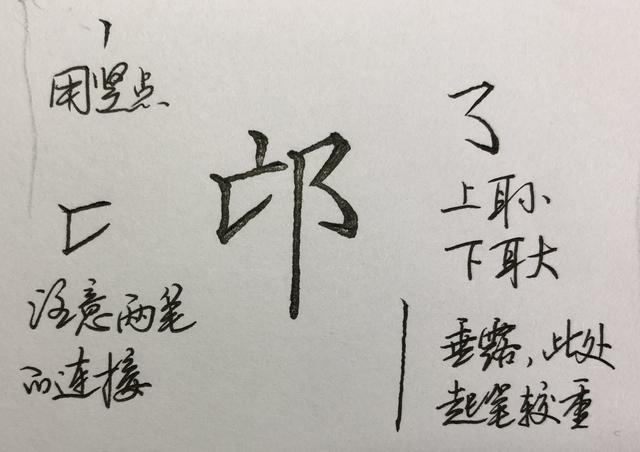 用竖点
邙
注意两笔
的连接
上耳小
下耳大
垂露，此处
起笔较重